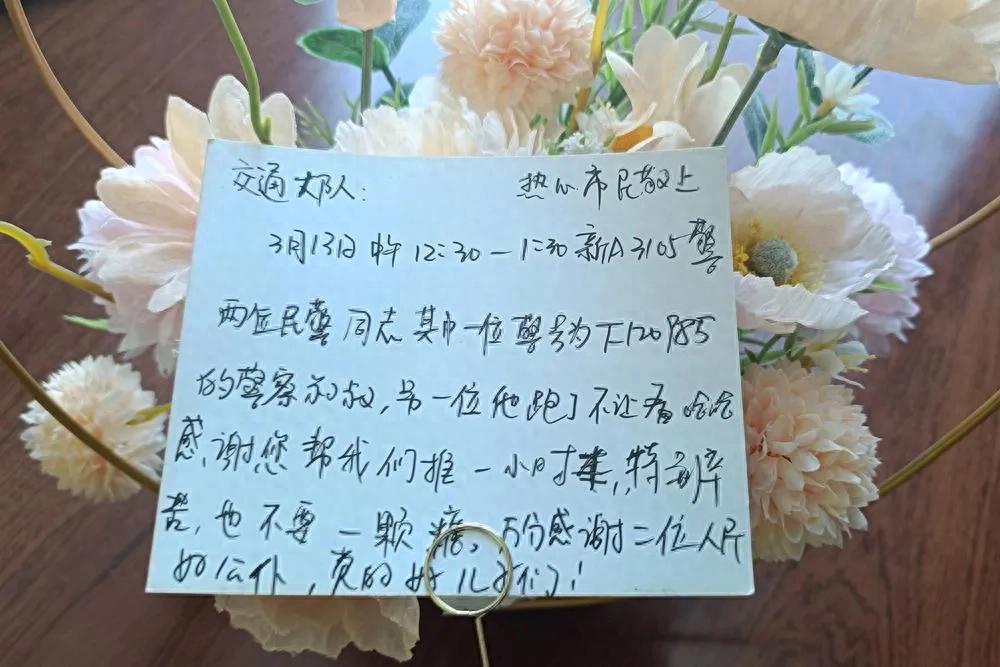 交通大队: 热心市民敬上
3月13日中午12:30-1:30新A3105警
两位民警同志其中一位警号为T120985
的警察叔叔,另一位他跑了不让看哈哈
感谢您帮我们推一小时车,特别辛
苦,也不要一颗糖。万分感谢二位人民
好公仆,真的好儿子们!